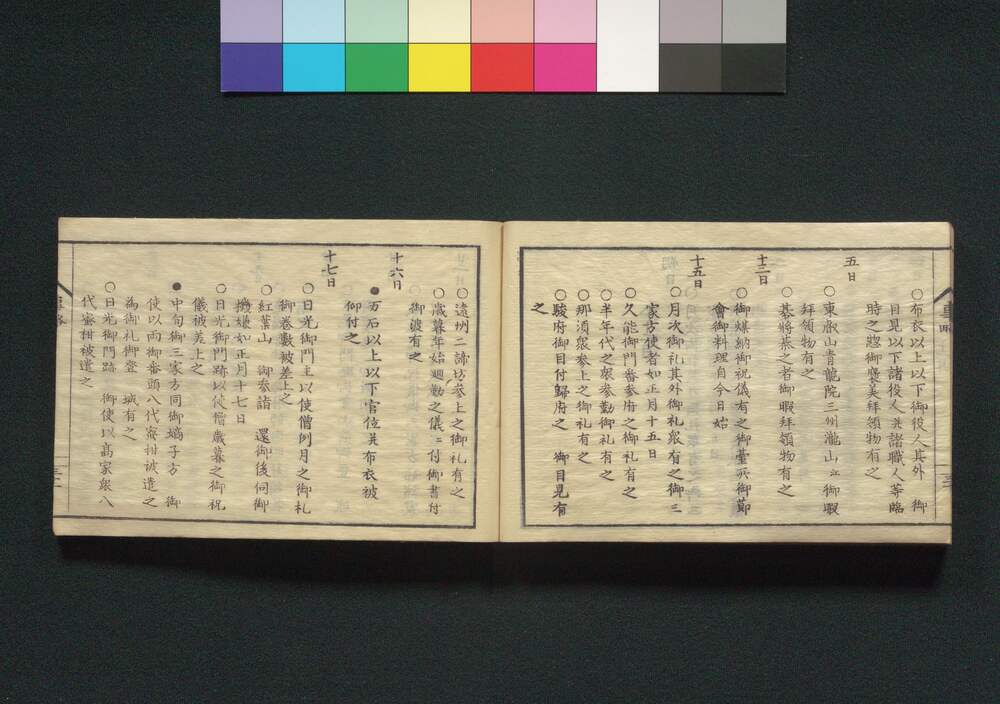 ○布衣以上以下御役人其外　御
目見以下諸役人并諸職人等臨
時之御褒美拝領物有之
五日
○東叡山青龍院三州瀧山江御暇
拝領物有之
○碁将棊之者御暇拝領物有之
十三日
○御煤納御祝儀有之御臺所御節
會御料理自今日始
十五日
○月次御礼其外御礼衆有之御三
家方使者如正月十五日
○久能御門番参府之御礼有之
○半年代之衆参勤御礼有之
○那須衆参上之御礼有之
○駿府御目付歸府之　御目見有
之
○遠州二諦坊参上之御礼有之
○歳暮年始廻勤之儀ニ付御書付
御渡有之
十六日
●万石以上以下官位并布衣被
仰付之
十七日
○日光御門主以使僧例月之御札
御巻数被差上之
○紅葉山　御参詣　還御後伺御
機嫌如正月十七日
○日光御門跡以使僧歳暮之御祝
儀被差上之
●中旬御三家方同御嫡子方　御
使以両御番頭八代蜜柑被遣之
為御礼御登　城有之
○日光御門跡　御使以高家衆八
代蜜柑被遣之